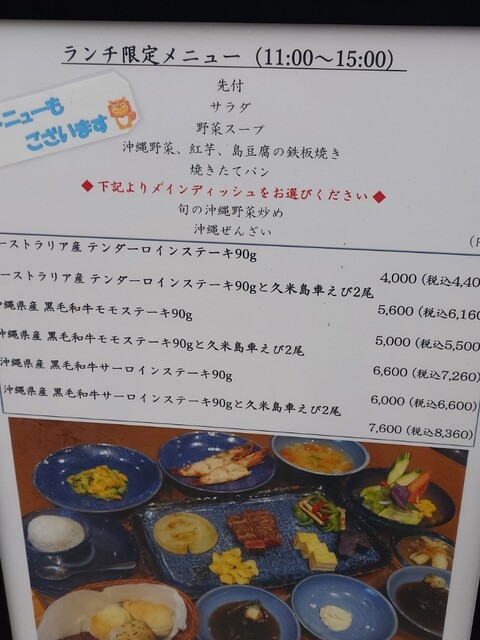 ランチ限定メニュー（11:00～15:00）
ニューも
ございます
先付
サラダ
野菜スープ
沖縄野菜、紅芋、島豆腐の鉄板焼き
焼きたてパン
◆下記よりメインディッシュをお選びください◆
旬の沖縄野菜炒め
沖縄ぜんざい
ーストラリア産 テンダーロインステーキ90g
4,000 (税込4,40
ーストラリア産 テンダーロインステーキ90gと久米島車えび2尾
5,600 (税込6,160
沖縄県産 黒毛和牛モモステーキ90g
5,000 (税込5,500
沖縄県産 黒毛和牛モモステーキ90gと久米島車えび2尾
6,600 (税込7,260)
沖縄県産 黒毛和牛サーロインステーキ90g
6,000 (税込6,600)
沖縄県産 黒毛和牛サーロインステーキ90gと久米島車えび2尾
7,600 (税込8,360)